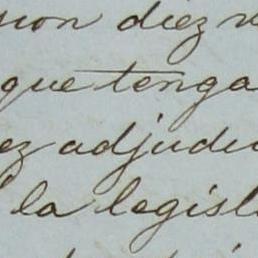 sion diez
que tenga
ez adjudi
la legisl